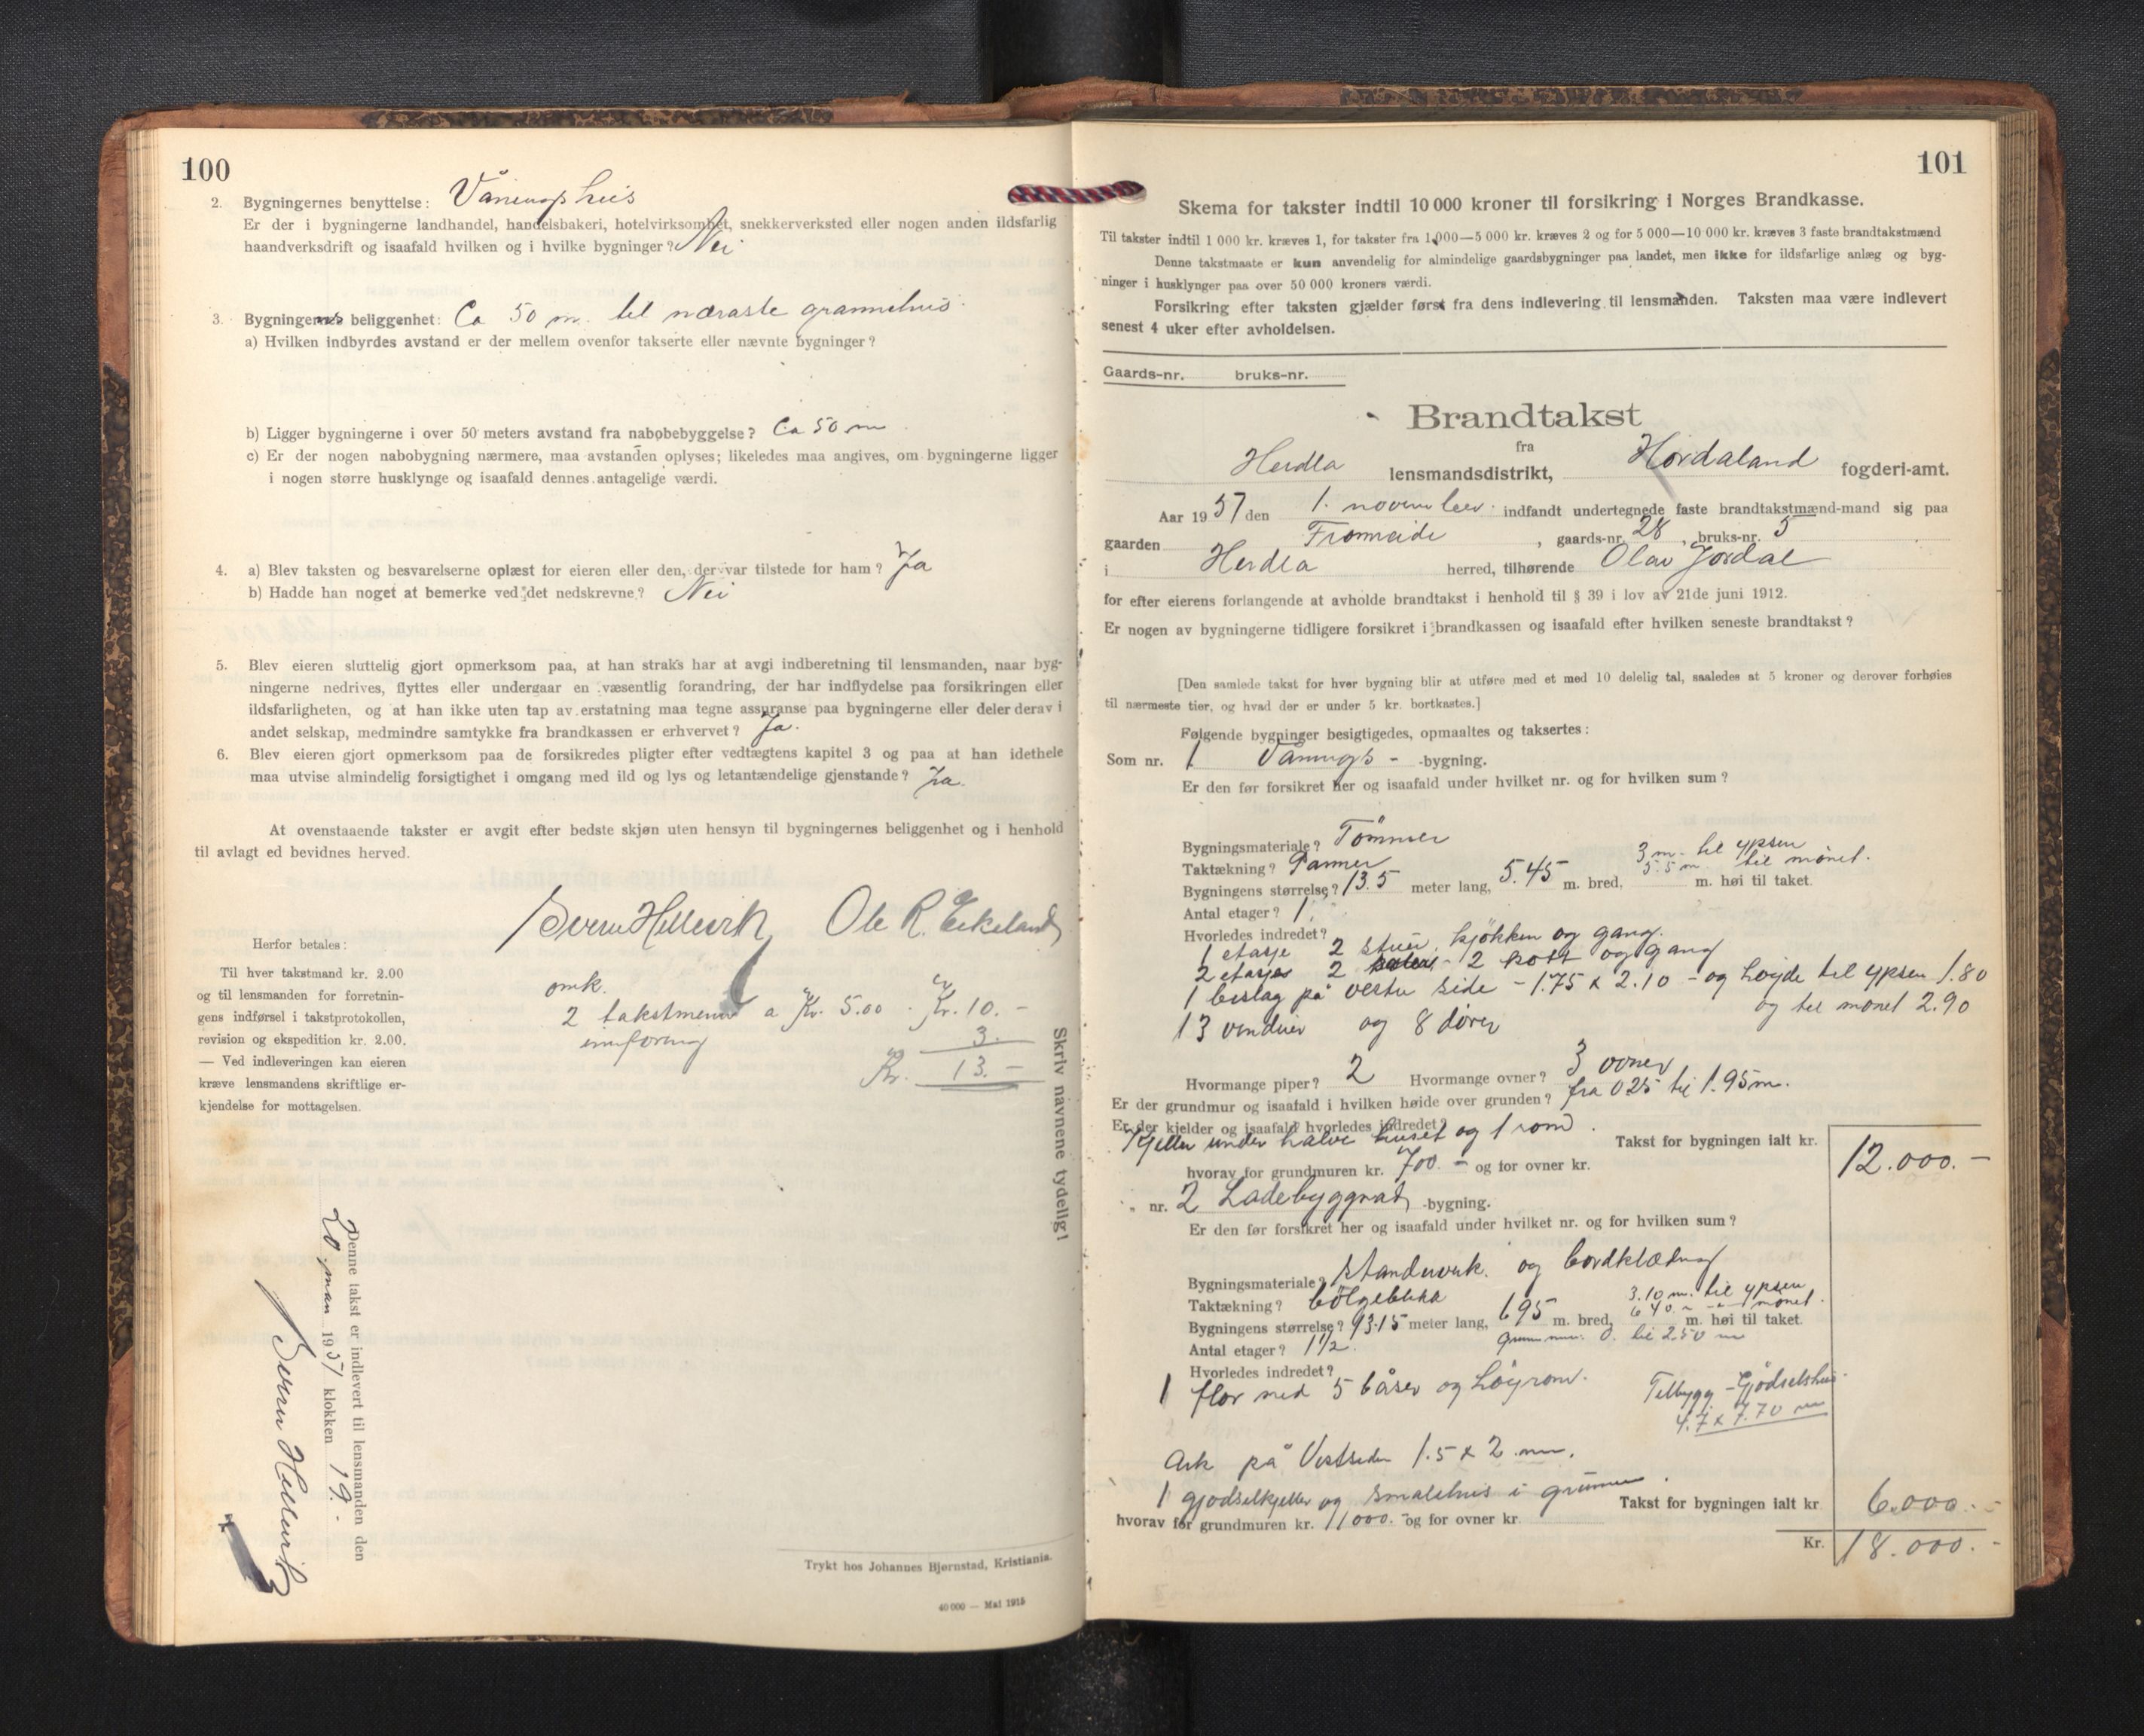 100
2. Bygningernes benyttelse: Våningshus
Er der i bygningerne landhandel, handelsbakeri, hotelvirksomhet, snekkerverksted eller nogen anden ildsfarlig
haandverksdrift og isaafald hvilken og i hvilke bygninger? Nei
3. Bygningernes beliggenhet: Ca 50 m. til næraste grannehus.
a) Hvilken indbyrdes avstand er der mellem ovenfor takserte eller nævnte bygninger?
b) Ligger bygningerne i over 50 meters avstand fra nabobebyggelse? Ca 50 m
c) Er der nogen nabobygning nærmere, maa avstanden oplyses; likeledes maa angives, om bygningerne ligger
i nogen større husklynge og isaafald dennes antagelige værdi.
4. a) Blev taksten og besvarelserne oplæst for eieren eller den, der var tilstede for ham? Ja
b) Hadde han noget at bemerke ved det nedskrevne? Nei
5. Blev eieren sluttelig gjort opmerksom paa, at han straks har at avgi indberetning til lensmanden, naar byg-
ningerne nedrives, flyttes eller undergaar en væsentlig forandring, der har indflydelse paa forsikringen eller
ildsfarligheten, og at han ikke uten tap av erstatning maa tegne assuranse paa bygningerne eller deler derav i
andet selskap, medmindre samtykke fra brandkassen er erhvervet? Ja.
6. Blev eieren gjort opmerksom paa de forsikredes pligter efter vedtægtens kapitel 3 og paa at han idethele
maa utvise almindelig forsigtighet i omgang med ild og lys og letantændelige gjenstande? Ja.
At ovenstaaende takster er avgit efter bedste skjøn uten hensyn til bygningernes beliggenhet og i henhold
til avlagt ed bevidnes herved.
Sverre Hellevik Ole R. Eikeland
Herfor betales:
Til hver takstmand kr. 2.00
og til lensmanden for forretnin-
gens indførsel i takstprotokollen,
revision og ekspedition kr. 2.00.
— Ved indleveringen kan eieren
kræve lensmandens skriftlige er-
kjendelse for mottagelsen.
omk.
2 takstmenn a Kr. 5.00 Kr. 10.-
innføring 3.
Kr. 13.-
Skriv navnene tydelig!
Denne takst er indlevert til lensmanden den
20 mars 1951 klokken 19.-
Sverre Hellevik
Trykt hos Johannes Bjørnstad, Kristiania.
40 000 — Mai 1915
101
Skema for takster indtil 10 000 kroner til forsikring i Norges Brandkasse.
Til takster indtil 1 000 kr. kræves 1, for takster fra 1 000—5 000 kr. kræves 2 og for 5 000—10 000 kr. kræves 3 faste brandtakstmænd
Denne takstmaate er kun anvendelig for almindelige gaardsbygninger paa landet, men ikke for ildsfarlige anlæg og byg-
ninger i husklynger paa over 50 000 kroners værdi.
Forsikring efter taksten gjælder først fra dens indlevering til lensmanden. Taksten maa være indlevert
senest 4 uker efter avholdelsen.
Gaards-nr. bruks-nr.
Brandtakst
fra
Herdla lensmandsdistrikt, Hordaland fogderi-amt.
Aar 1957 den 1. november indfandt undertegnede faste brandtakstmænd-mand sig paa
gaarden Fromreide, gaards-nr. 28, bruks-nr. 5
i Herdla herred, tilhørende Olav Jordal
for efter eierens forlangende at avholde brandtakst i henhold til § 39 i lov av 21de juni 1912.
Er nogen av bygningerne tidligere forsikret i brandkassen og isaafald efter hvilken seneste brandtakst?
[Den samlede takst for hver bygning blir at utføre med et med 10 delelig tal, saaledes at 5 kroner og derover forhøies
til nærmeste tier, og hvad der er under 5 kr. bortkastes.]
Følgende bygninger besigtigedes, opmaaltes og taksertes:
Som nr. 1 Vånings- -bygning.
Er den før forsikret her og isaafald under hvilket nr. og for hvilken sum?
Bygningsmateriale? Tømmer
Taktækning? Panner 3 m. til ypsen
Bygningens størrelse? 13.5 meter lang, 5.45 m. bred, 5.5 m til mønet. m. høi til taket.
Antal etager? 1.
Hvorledes indredet?
1 etasje 2 stuer, kjøkken og gang.
2 etasje 2 - 2 kott og gang
1 bislag på vestre side - 1.75 x 2.10 - og høyde til ypsen 1.80
og til mønet 2.90
13 vinduer og 8 dører
Hvormange piper? 2 Hvormange ovner? 3 ovner
Er der grundmur og isaafald i hvilken høide over grunden? fra 0.25 til 1.95 m.
Er der kjelder og isaafald hvorledes indredet?
Kjeller under halve huset og 1 rom. Takst for bygningen ialt kr. 12.000.-
hvorav for grundmuren kr. 700.- og for ovner kr.
" nr. 2 Ladebyggnad -bygning.
Er den før forsikret her og isaafald under hvilket nr. og for hvilken sum?
Bygningsmateriale? Standerverk og bordklædning
Taktækning? bølgeblekk 3.10 m. til ypsen
Bygningens størrelse? 13.15 meter lang, 6.95 m. bred, 6.40 m -"- mønet. m. høi til taket.
Antal etager? 1 1/2 grunnmur 0. til 2.50 m
Hvorledes indredet?
1 flor med 5 båser og høyrom. Tilbygg - Gjødselshus
4.7 x 7.70 m
Ark på Vestsiden 1.5 x 2 m.
1 gjødselkjeller og smalehus i grunnen. Takst for bygningen ialt kr 6.000.-
hvorav for grundmuren kr. 1000.- og for ovner kr.
Kr. 18.000.-